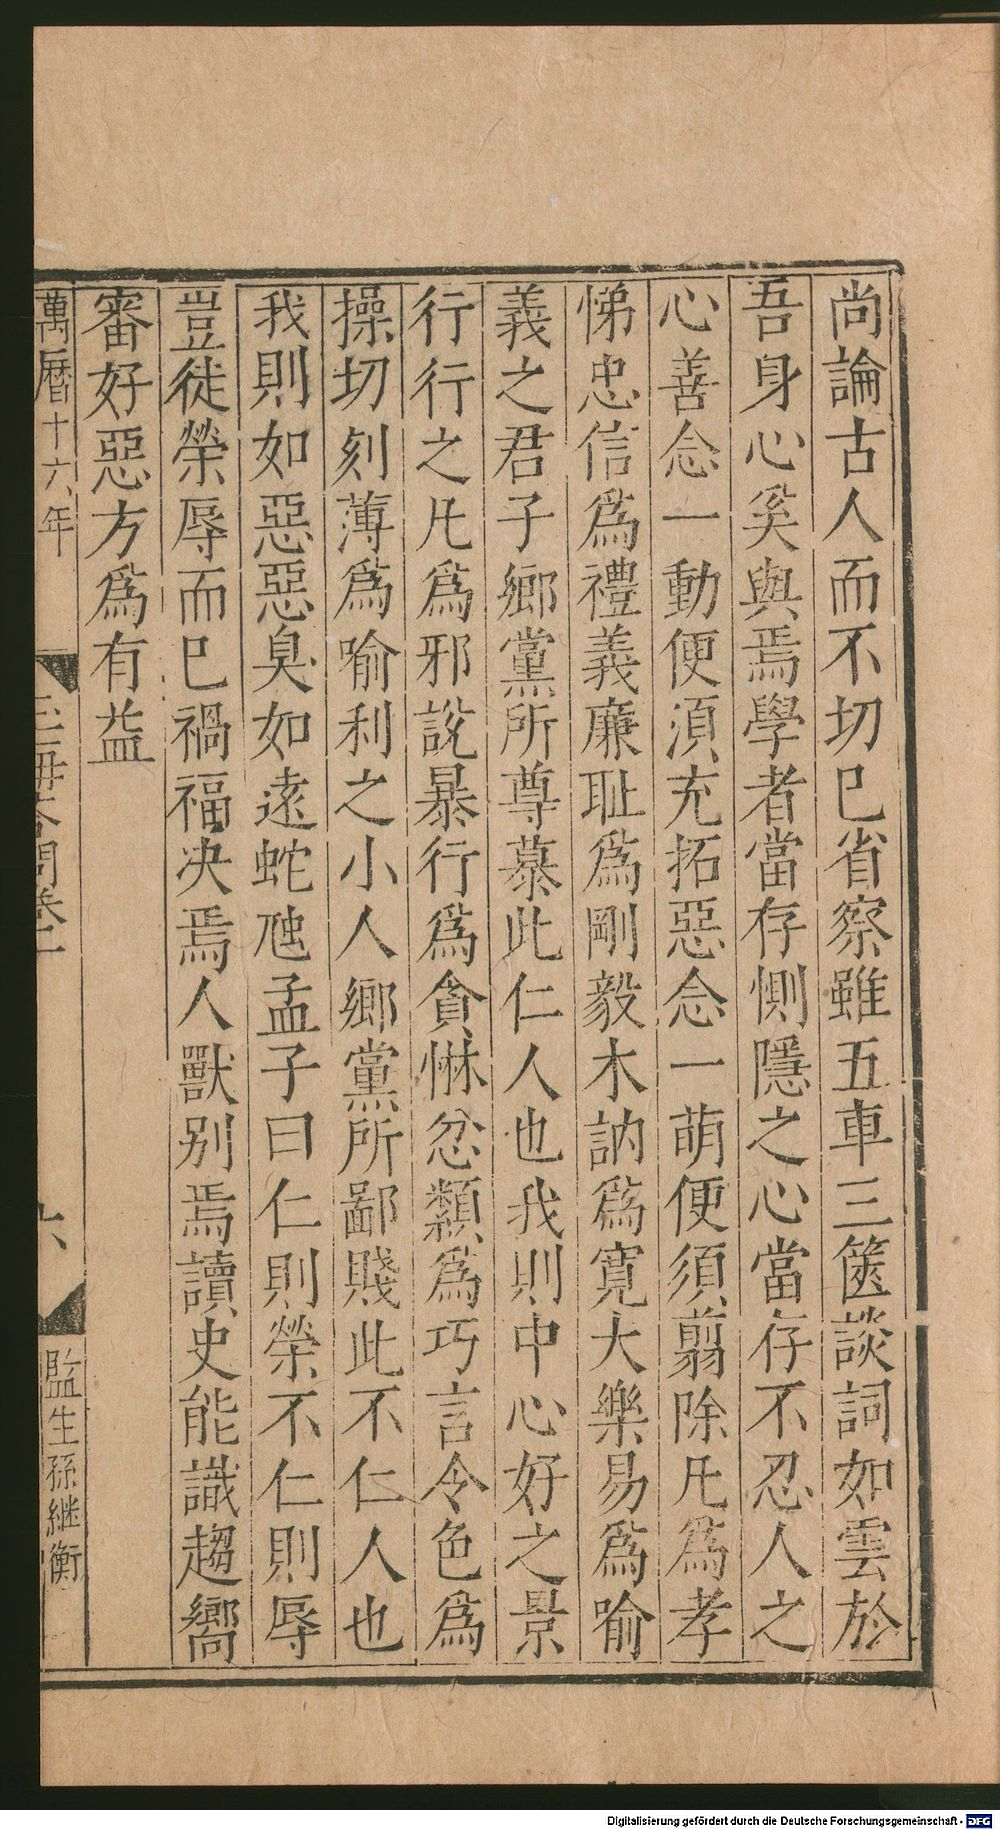 尚論古人而不切已省察雖五車三篋談詞如雲於
吾身心奚與焉學者當存惻隱之心當存不忍人之
心善念一動便須充拓惡念一萌便須翦除凡為孝
悌忠信為禮義廉耻為剛毅木訥為寬大樂易為喻
義之君子鄉黨所尊慕此仁人也我則中心好之景
行行之凡為邪說暴行為貪惏忿纇為巧言令色為
操切刻薄為喻利之小人鄉黨所鄙賤此不仁人也
我則如惡惡臭如遠蛇虺孟子曰仁則榮不仁則辱
豈徒榮辱而已禍福决焉人獸别焉讀史能識趨嚮
審好惡方為有益
萬曆十六年
卷二
六
監生孫継衡
Digitalisierung gefördert durch die Deutsche Forschungsgemeinschaft - DFG